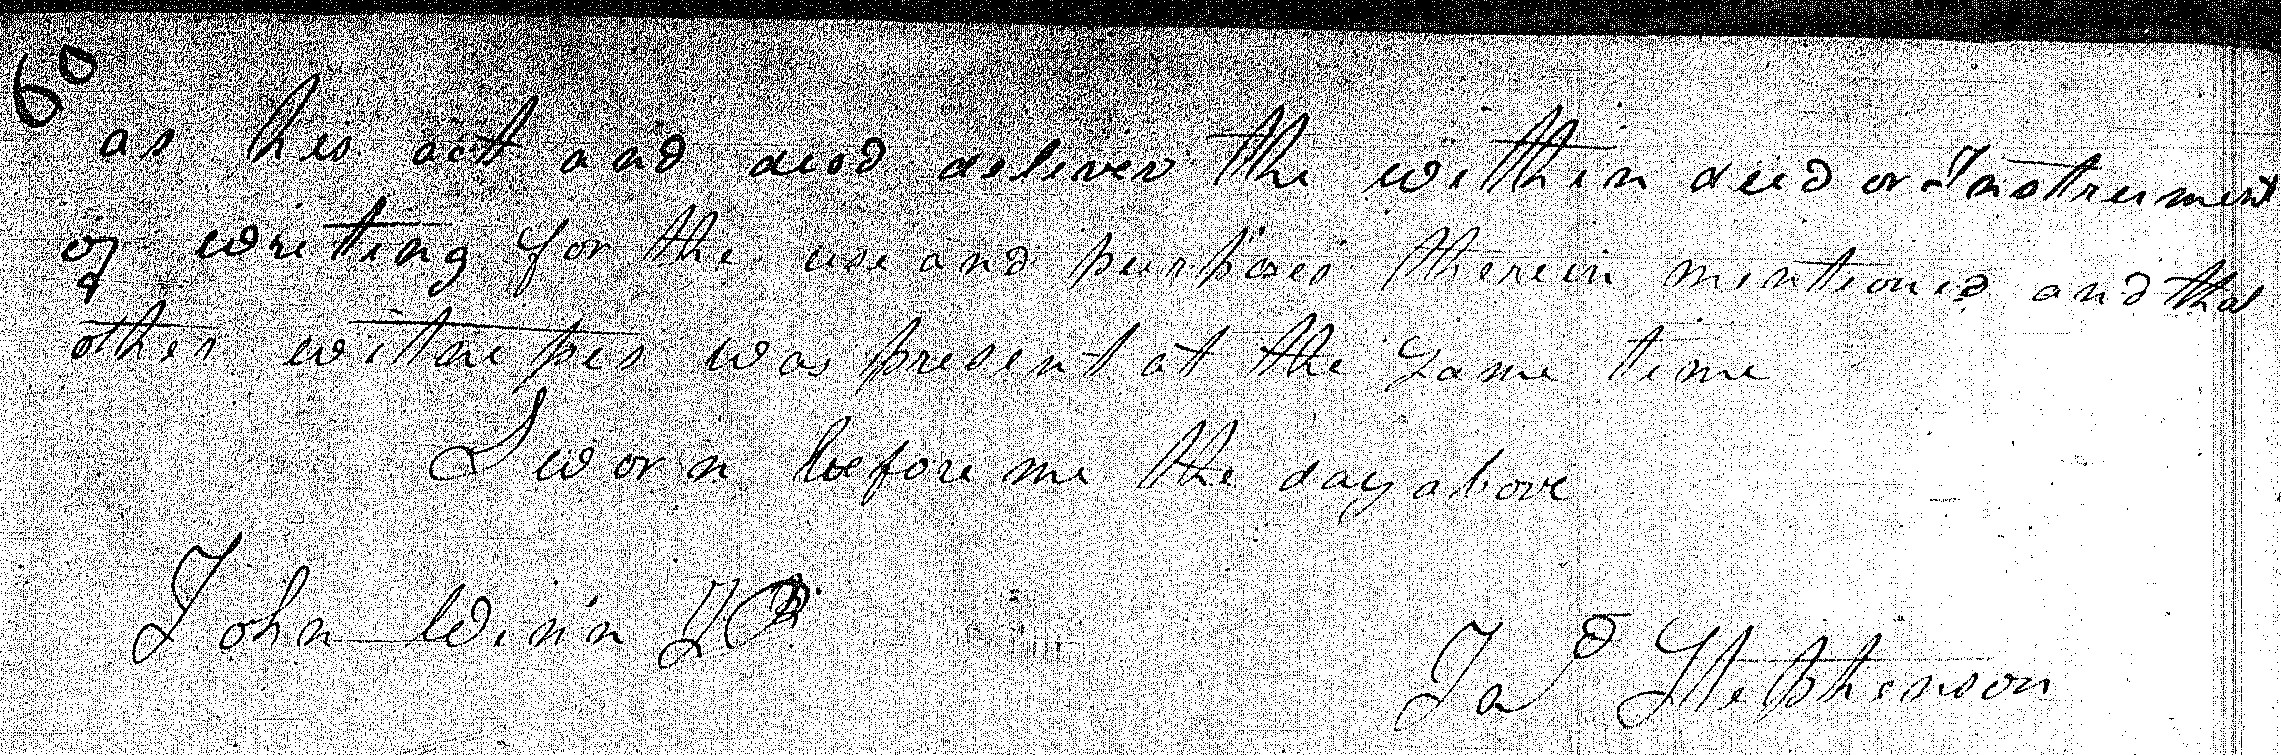 60
as his act and deed deliver the within deed or Instrument
of writing for the use and purposes therein mentioned and that
other witnesses was present at the same time
Sworn before me the day above
John Winn JP
Jas Stephenson